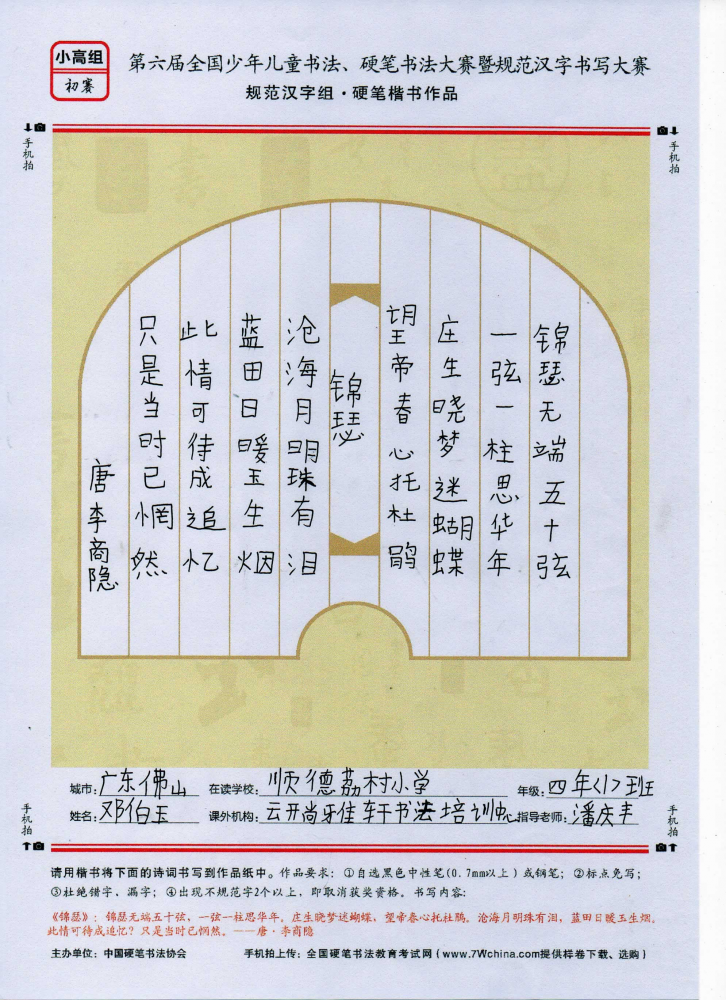 小高组
初赛
第六届全国少年儿童书法、硬笔书法大赛暨规范汉字书写大赛
规范汉字组·硬笔楷书作品
手机拍
手机拍
锦瑟无端五十弦
一弦一柱思华年
庄生晓梦迷蝴蝶
望帝春心托杜鹃
锦瑟
沧海月明珠有泪
蓝田日暖玉生烟
此情可待成追忆
只是当时已惘然
唐李商隐
城市：广东佛山 在读学校：顺德荔村小学 年级：四年〈1〉班
姓名：邓伯玉 课外机构：云开尚牙佳轩书法培训中心 指导老师：潘庆丰
手机拍
手机拍
请用楷书将下面的诗词书写到作品纸中。作品要求：①自选黑色中性笔(0.7mm以上)或钢笔；②标点免写；
③杜绝错字、漏字；④出现不规范字2个以上，即取消获奖资格。书写内容：
《锦瑟》：锦瑟无端五十弦，一弦一柱思华年。庄生晓梦迷蝴蝶，望帝春心托杜鹃。沧海月明珠有泪，蓝田日暖玉生烟。
此情可待成追忆？只是当时已惘然。——唐·李商隐
主办单位：中国硬笔书法协会 手机拍上传：全国硬笔书法教育考试网（www.7Wchina.com提供样卷下载、选购）